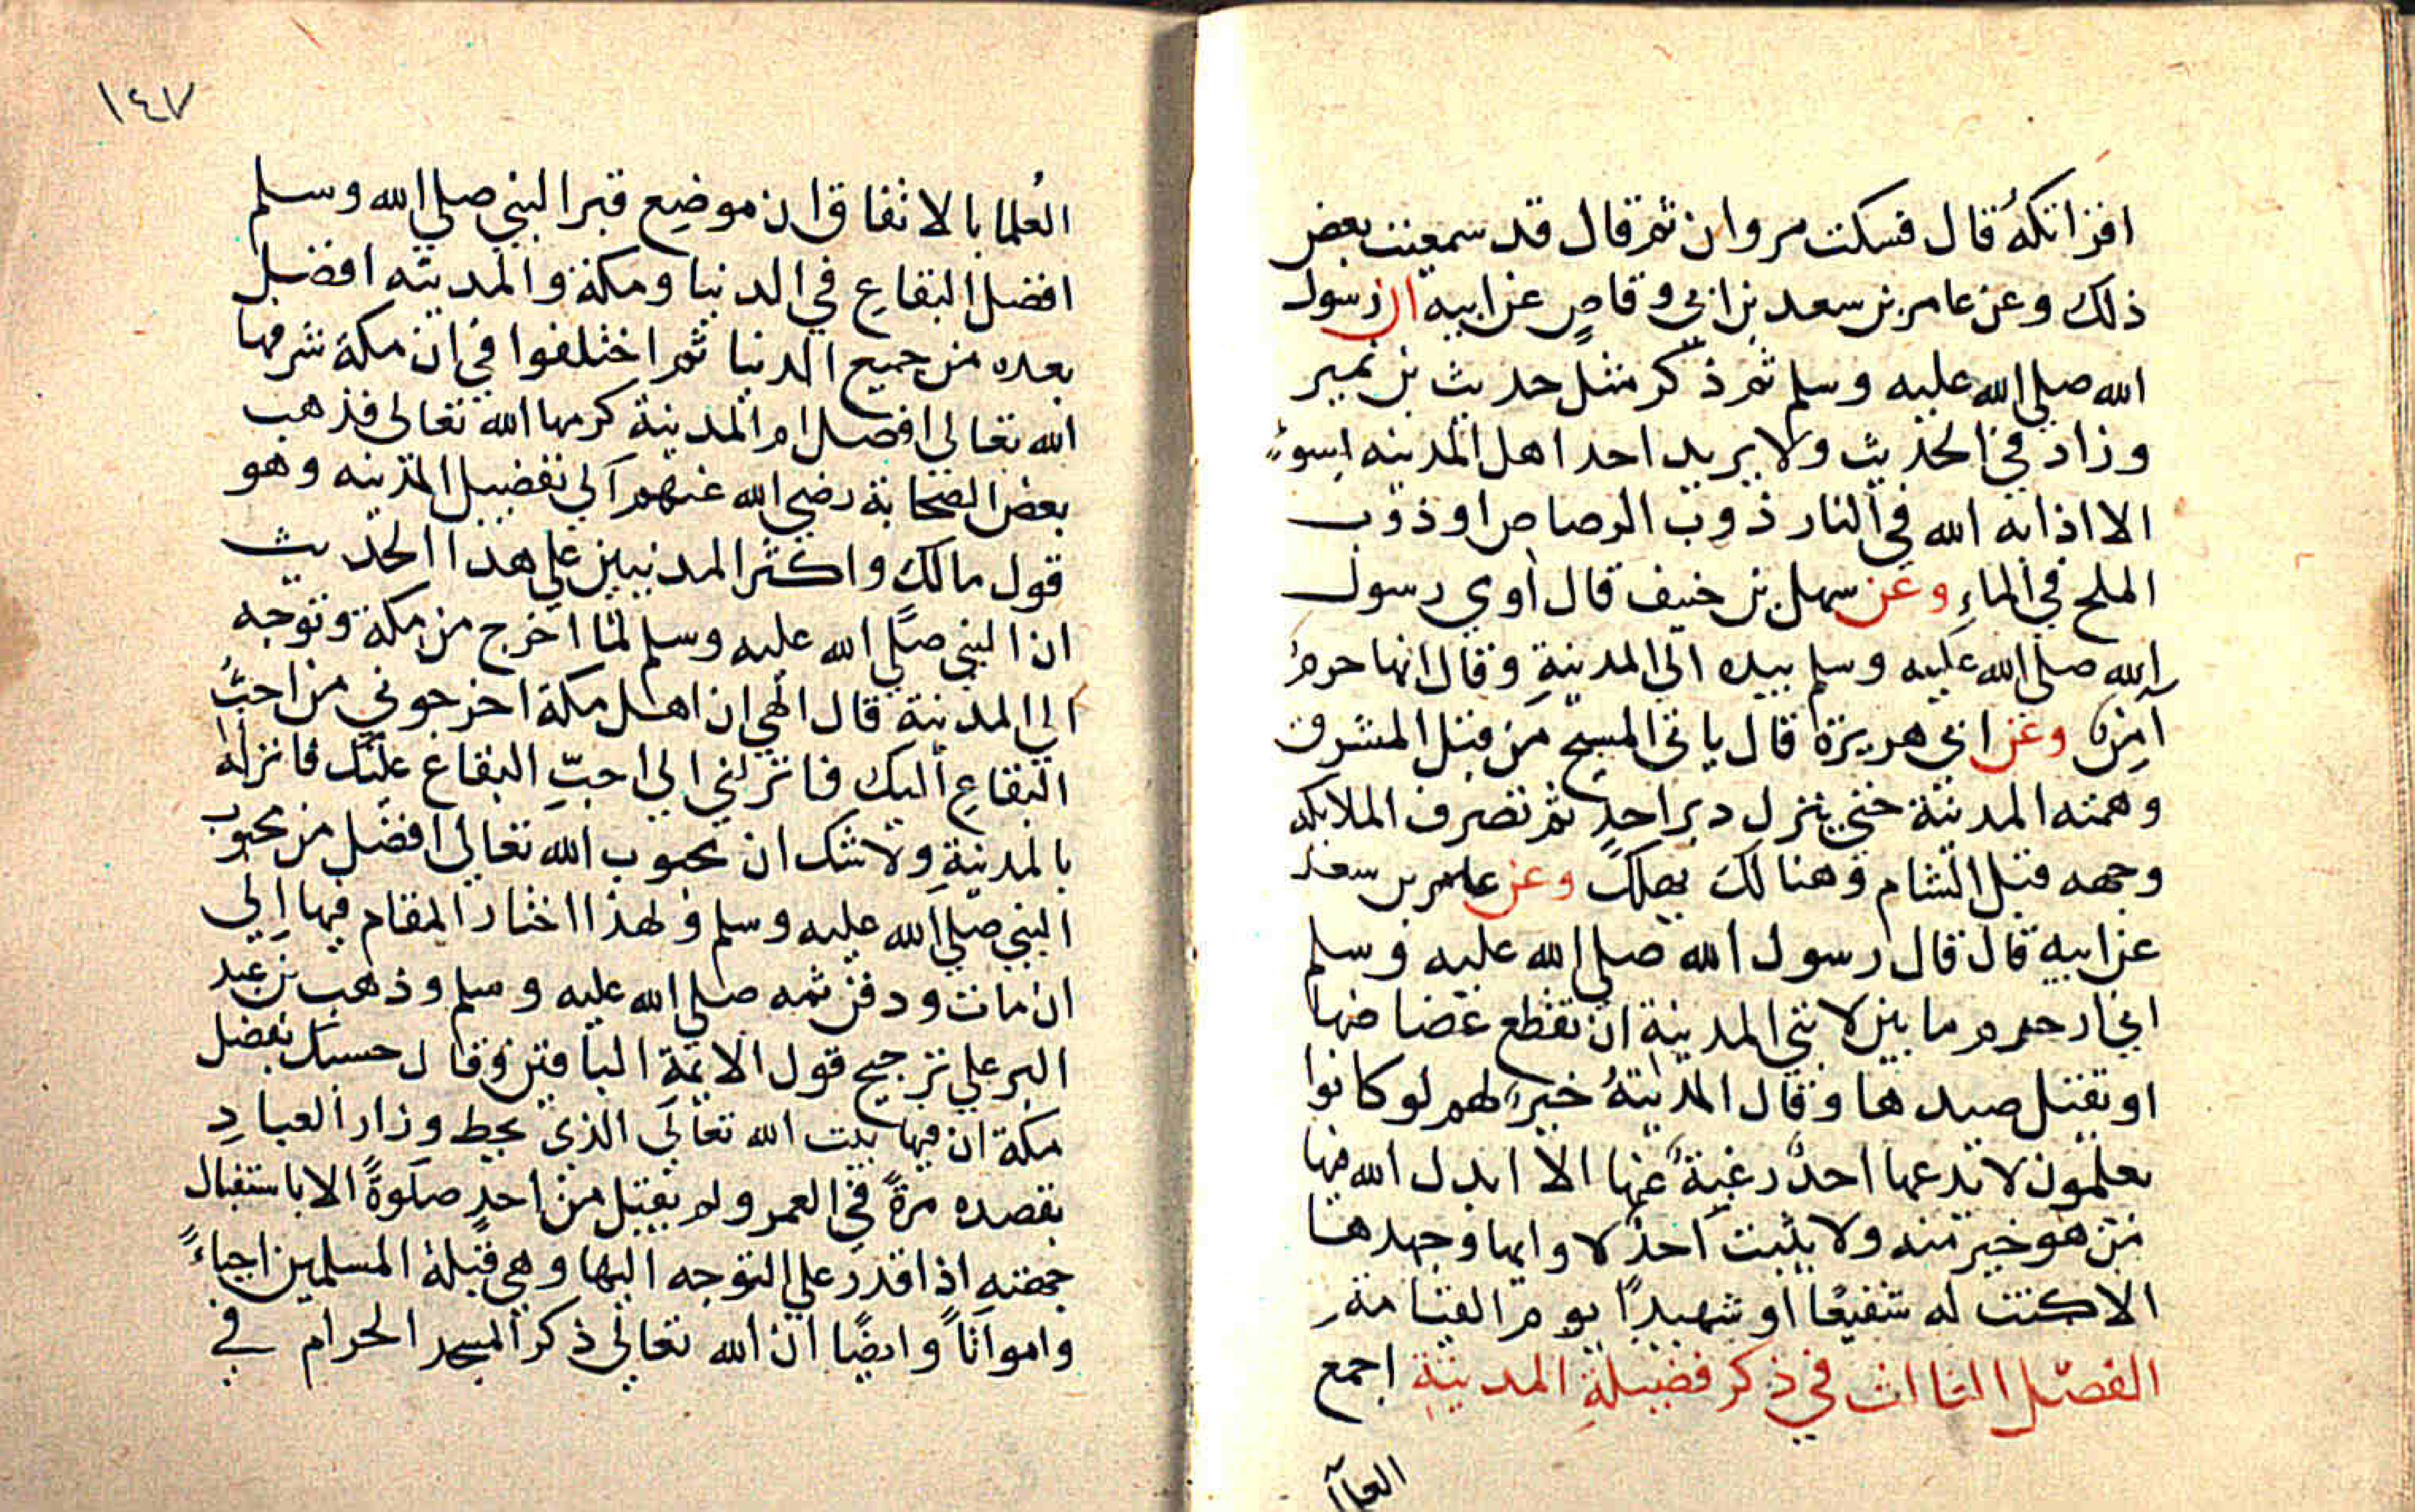 افزاتكهُ قال فسكت مروان ثم قال قد سمعت بعض
ذلك وعن عامر بن سعد بن ابي وقاصٍ عن ابيه ان رسول
الله صلي الله عليه وسلم ثم ذكر مثل حديث بن نمير
وزاد في الحديث ولا يريد احد اهل المدينه بسوءٍ
الا اذابه الله في النار ذوب الرصاص او ذوب
الملح في الماءِ وعن سهل بن حنيف قال اوي رسول
الله صلي الله عليه وسلم بيده الي المدينةِ وقال انها حرمٌ
آمنٌ وعن ابي هريرة قال ياتي المسيح من قبل المشرق
وهمته المدينة حتي ينزل دبر احدٍ ثم تصرف الملايكه
وجهه قبل الشام وهنالك يهلك وعن عامر بن سعد
عن ابيه قال قال رسول الله صلي الله عليه وسلم
اني احرم ما بين لابتي المدينة ان تقطع عضاهها
او تقتل صيدها وقال المدينةُ خيرٌ لهم لو كانوا
يعلمون لا يدعها احدٌ رغبةً عنها الا ابدل الله فيها
من هو خير منه ولا يثبت احدٌ لاوايها وجهدها
الا كنت له شفيعًا او شهيدًا يوم القيامة
الفصل الثالث في ذكر فضيلةِ المدينةِ اجمع
العلما
١٤٧
العُلما بالاتفاق ان موضع قبر النبي صلي الله وسلم
افضل البقاعِ في الدنيا ومكة والمدينه افضل
بعده من جميع الدنيا ثم اختلفوا في ان مكة شرفها
الله تعالي افضل ام المدينة كرمها الله تعالي فذهب
بعض الصحابة رضي الله عنهم الي تفضيل المدينه وهو
قول مالك واكثر المدنيين علي هذا الحديث
ان النبي صلي الله عليه وسلم لما اخرج من مكة وتوجه
الي المدينة قال الهي ان اهل مكة اخرجوني من احبِّ
البقاعِ اليك فانزلني الي احبِّ البقاع عليك فانزله
بالمدينةِ ولا شك ان محبوب الله تعالي افضل من محبوب
النبي صلي الله عليه وسلم ولهذا اختار المقام فيها الي
ان مات ودفن ثمه صلي الله عليه وسلم وذهب بن عبد
البر علي ترجيح قول الايمة الباقين وقال حسبك بفضل
مكة ان فيها بيت الله تعالي الذي يحط وزار العبادِ
بقصده مرةً في العمر ولم يقبل من احدٍ صلوةً الا باستقبال
جهته اذا قدر علي التوجه اليها وهي قبلة المسلمين احياءً
وامواتاً وايضًا ان الله تعالي ذكر المسجد الحرام في